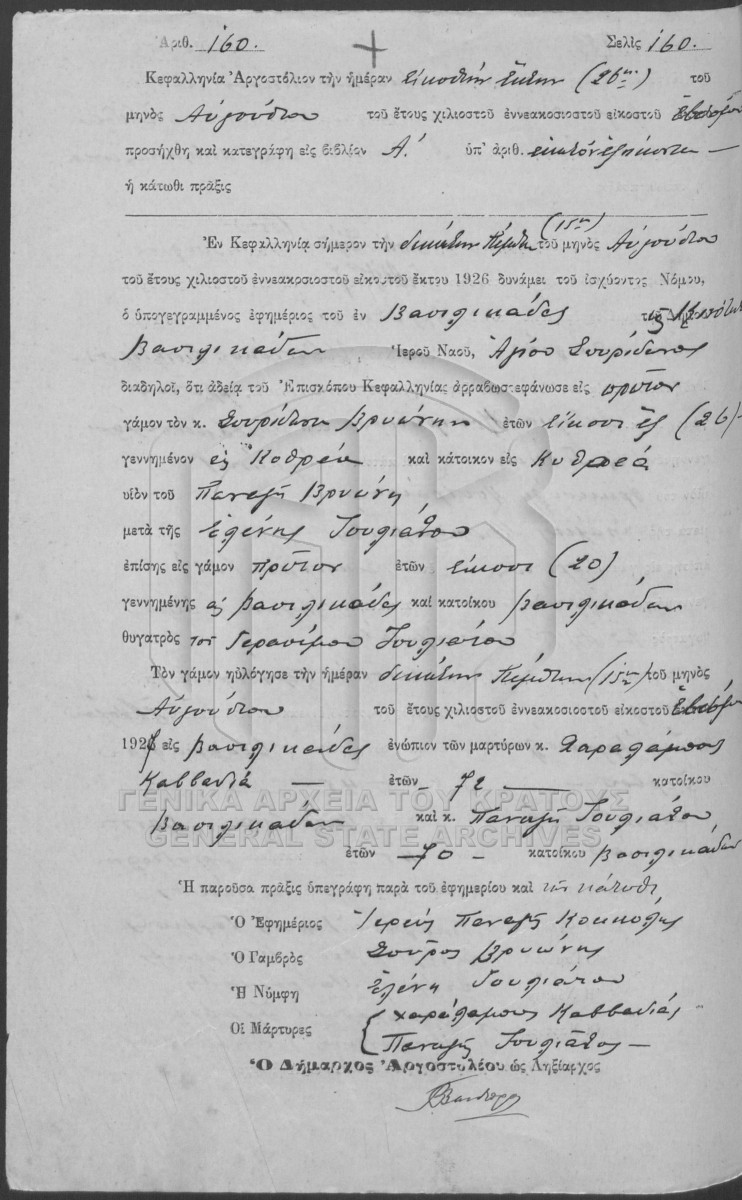 Ἀριθ. 160. Σελὶς 160.
Κεφαλληνία Ἀργοστόλιον τὴν ἡμέραν εἰκοστὴν ἕκτην (26ην) τοῦ
μηνὸς Αὐγούστου τοῦ ἔτους χιλιοστοῦ ἐννεακοσιοστοῦ εἰκοστοῦ
προσήχθη καὶ κατεγράφη εἰς βιβλίον Α. ὑπ' ἀριθ. ἑκατὸν ἑξήκοντα —
ἡ κάτωθι πρᾶξις
Ἐν Κεφαλληνίᾳ σήμερον τὴν δεκάτην πέμπτην (15ην) τοῦ μηνὸς Αὐγούστου
τοῦ ἔτους χιλιοστοῦ ἐννεακοσιοστοῦ εἰκοστοῦ ἕκτου 1926 δυνάμει τοῦ ἰσχύοντος Νόμου,
ὁ ὑπογεγραμμένος ἐφημέριος τοῦ ἐν Βασιλικάδες
Βασιλικάδων Ἱεροῦ Ναοῦ, Ἁγίου Σπυρίδωνος
διαδηλοῖ, ὅτι ἀδείᾳ τοῦ Ἐπισκόπου Κεφαλληνίας ἀρραβωστεφάνωσε εἰς πρῶτον
γάμον τὸν κ. Σπυρίδωνα Βρυώνην ἐτῶν εἴκοσι ἕξ (26)
γεννημένον εἰς Κοθρέα καὶ κάτοικον εἰς Κοθρεά
υἱὸν τοῦ Παναγῆ Βρυώνη
μετὰ τῆς Ἑλένης Τουλιάτου
ἐπίσης εἰς γάμον πρῶτον ἐτῶν εἴκοσι (20)
γεννημένης εἰς Βασιλικάδες καὶ κατοίκου Βασιλικάδων
θυγατρὸς τοῦ Γερασίμου Τουλιάτου
Τὸν γάμον ηὐλόγησε τὴν ἡμέραν δεκάτην πέμπτην (15ην) τοῦ μηνὸς
Αὐγούστου τοῦ ἔτους χιλιοστοῦ ἐννεακοσιοστοῦ εἰκοστοῦ
εἰς Βασιλικάδες ἐνώπιον τῶν μαρτύρων κ. Χαραλάμπους
Καββαδία — ἐτῶν 72 — κατοίκου
Βασιλικάδων καὶ κ. Παναγῆ Τουλιάτου
ἐτῶν — 70 — κατοίκου Βασιλικάδων
ΓΕΝΙΚΑ ΑΡΧΕΙΑ ΤΟΥ ΚΡΑΤΟΥΣ
GENERAL STATE ARCHIVES
Ἡ παροῦσα πρᾶξις ὑπεγράφη παρὰ τοῦ ἐφημερίου καὶ τῶν κάτωθι
Ὁ Ἐφημέριος Ἱερεὺς Παναγῆς
Ὁ Γαμβρὸς Σπῦρος Βρυώνης
Ἡ Νύμφη Ἑλένη Τουλιάτου
Οἱ Μάρτυρες Χαράλαμπος Καββαδίας
Παναγῆς Τουλιάτος —
Ὁ Δήμαρχος Ἀργοστολίου ὡς Ληξίαρχος